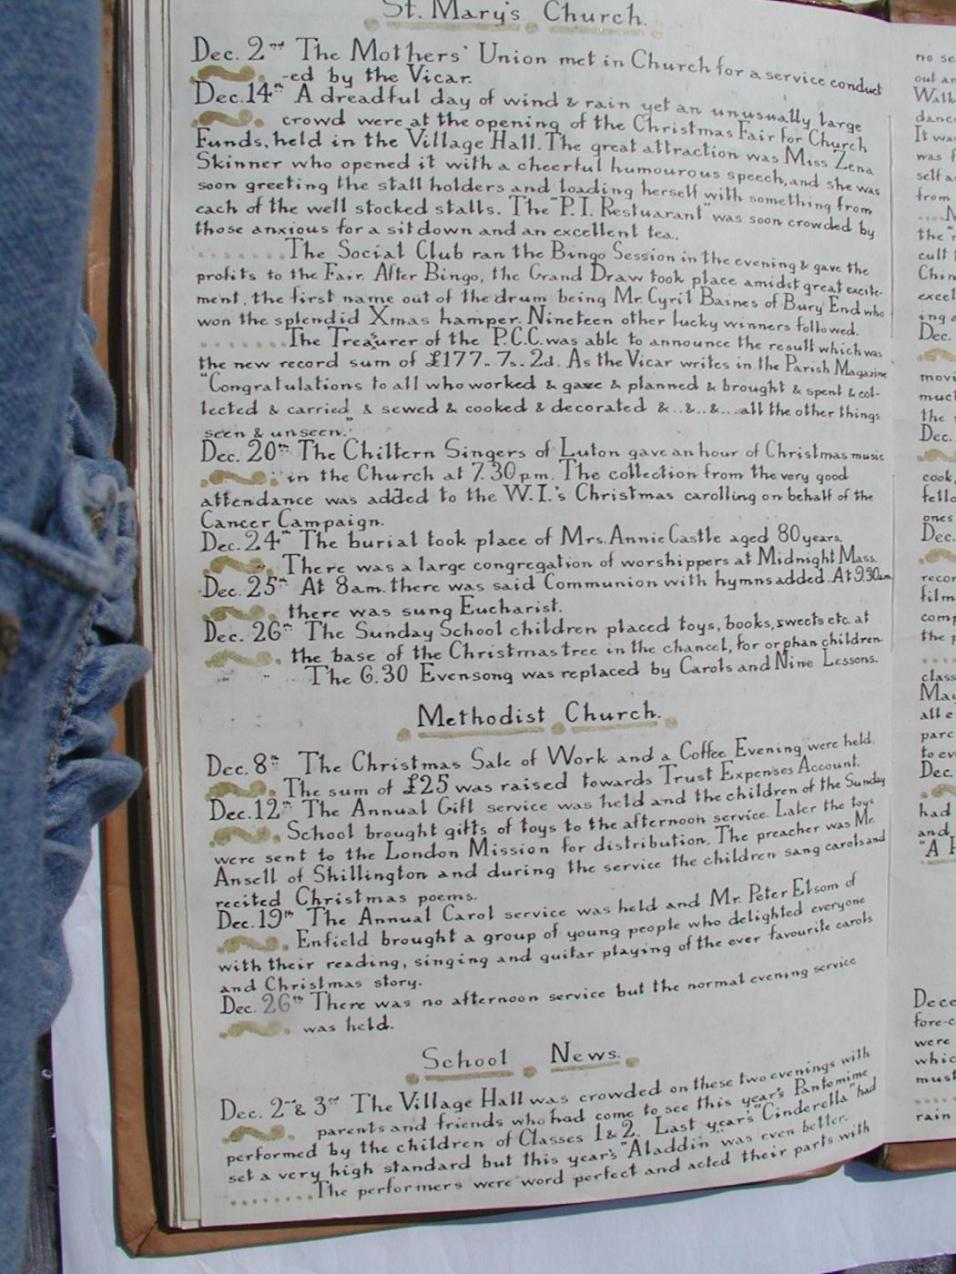 St. Mary's Church.
Dec. 2nd The Mothers' Union met in Church for a service conduct
-ed by the Vicar.
Dec. 14th A dreadful day of wind & rain yet an unusually large
crowd were at the opening of the Christmas Fair for Church
Funds, held in the Village Hall. The great attraction was Miss Zena
Skinner who opened it with a cheerful humourous speech, and she was
soon greeting the stall holders and loading herself with something from
each of the well stocked stalls. The "P.I. Restuarant" was soon crowded by
those anxious for a sit down and an excellent tea.
........The Social Club ran the Bingo Session in the evening & gave the
profits to the Fair. After Bingo, the Grand Draw took place amidst great excite-
ment, the first name out of the drum being Mr. Cyril Baines of Bury End who
won the splendid Xmas hamper. Nineteen other lucky winners followed.
........The Treasurer of the P.C.C. was able to announce the result which was
the new record sum of £177.. 7s.. 2d. As the Vicar writes in the Parish Magazine
"Congratulations to all who worked & gave & planned & brought & spent & col-
lected & carried & sewed & cooked & decorated &..&..&...all the other things
seen & unseen."
Dec. 20th The Chiltern Singers of Luton gave an hour of Christmas music
in the Church at 7.30 p.m. The collection from the very good
attendance was added to the W.I.'s Christmas carolling on behalf of the
Cancer Campaign.
Dec. 24th The burial took place of Mrs. Annie Castle aged 80 years.
There was a large congregation of worshippers at Midnight Mass.
Dec. 25th At 8am. there was said Communion with hymns added. At 9.30am.
there was sung Eucharist.
Dec. 26th The Sunday School children placed toys, books, sweets etc. at
the base of the Christmas tree in the chancel, for orphan children.
" " The 6.30 Evensong was replaced by Carols and Nine Lessons.
Methodist Church.
Dec. 8th The Christmas Sale of Work and a Coffee Evening were held.
The sum of £25 was raised towards Trust Expenses Account.
Dec. 12th The Annual Gift service was held and the children of the Sunday
School brought gifts of toys to the afternoon service. Later the toys
were sent to the London Mission for distribution. The preacher was Mr.
Ansell of Shillington and during the service the children sang carols and
recited Christmas poems.
Dec. 19th The Annual Carol service was held and Mr. Peter Elsom of
Enfield brought a group of young people who delighted everyone
with their reading, singing and guitar playing of the ever favourite carols
and Christmas story.
Dec. 26th There was no afternoon service but the normal evening service
was held.
School News.
Dec. 2nd & 3rd The Village Hall was crowded on these two evenings with
parents and friends who had come to see this year's Pantomime
performed by the children of Classes 1 & 2. Last year's "Cinderella" had
set a very high standard but this year's "Aladdin" was even better.
........The performers were word perfect and acted their parts with